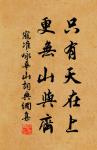 只有天在上
更無山與齊
寇准咏華山詞典網集